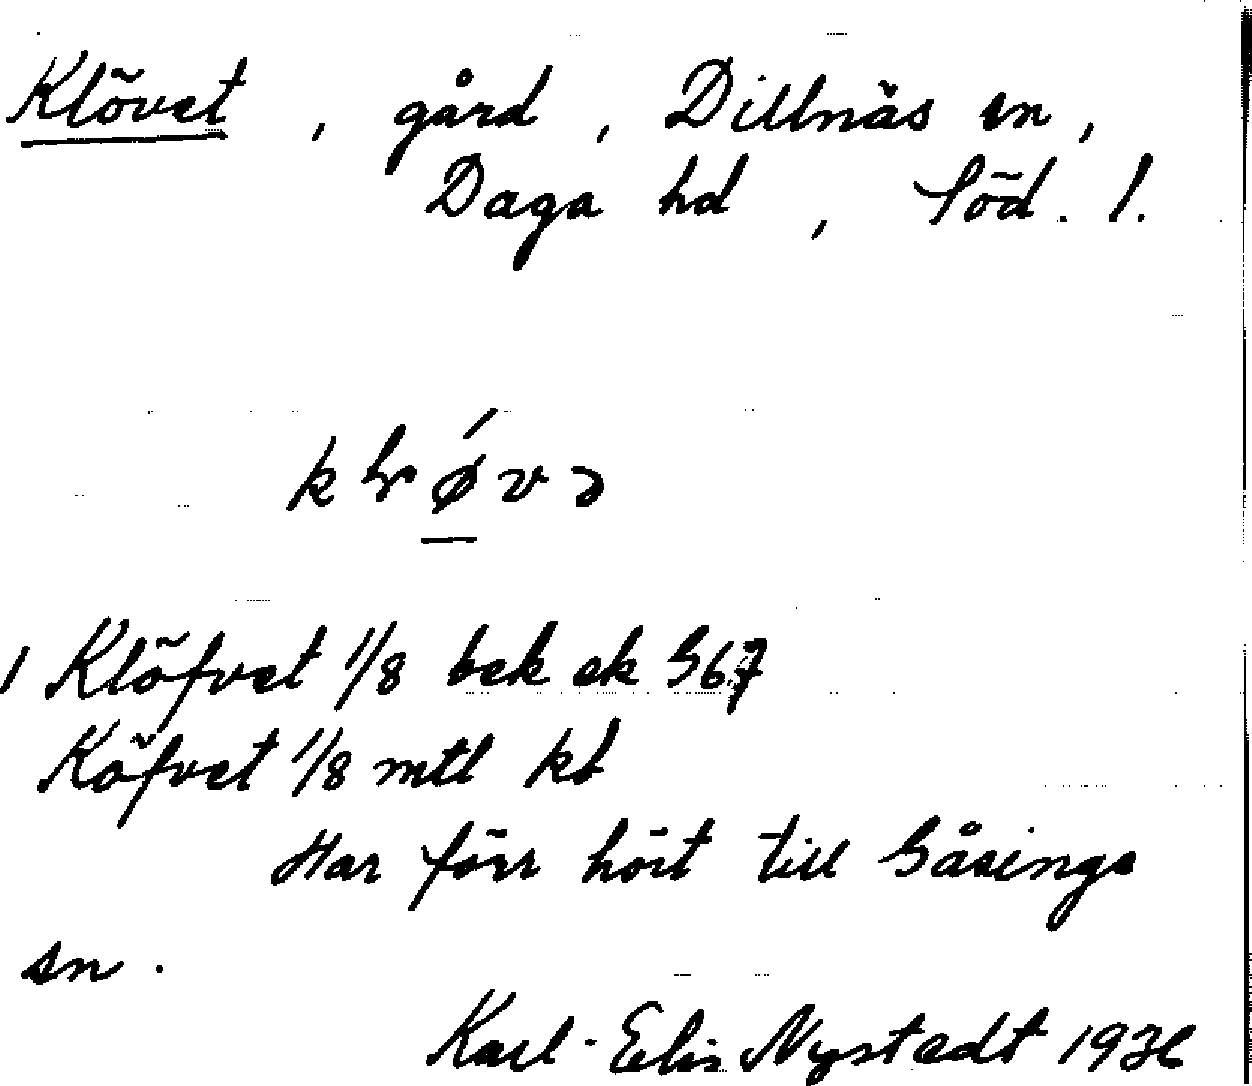 Klövet, gård, Dillnäs sn,
Daga hd, Söd. l.
1 Klöfvet 1/8 bek ek G67
Köfvet 1/8 mtl kt
Har förr hört till Gåsinge
sn.
Karl-Elis Nystedt 1936